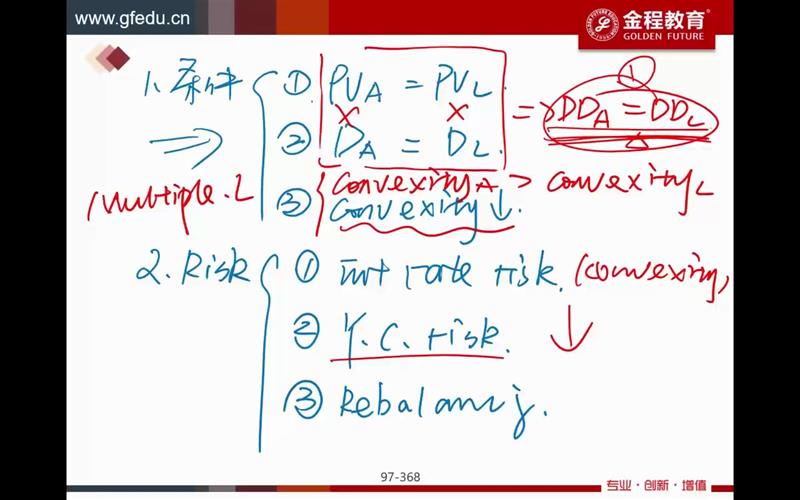 www.gfedu.cn
金程教育
GOLDEN FUTURE
1.条件 ① PVA = PVL
② DA = DL.
= DDA = DDL ①
Multiple.L
③ Convexity A > Convexity L
Convexity ↓.
2. Risk ① int rate risk. (convexity,
② Y.C. risk. ↓
③ Rebalancing.
97-368
专业·创新·增值